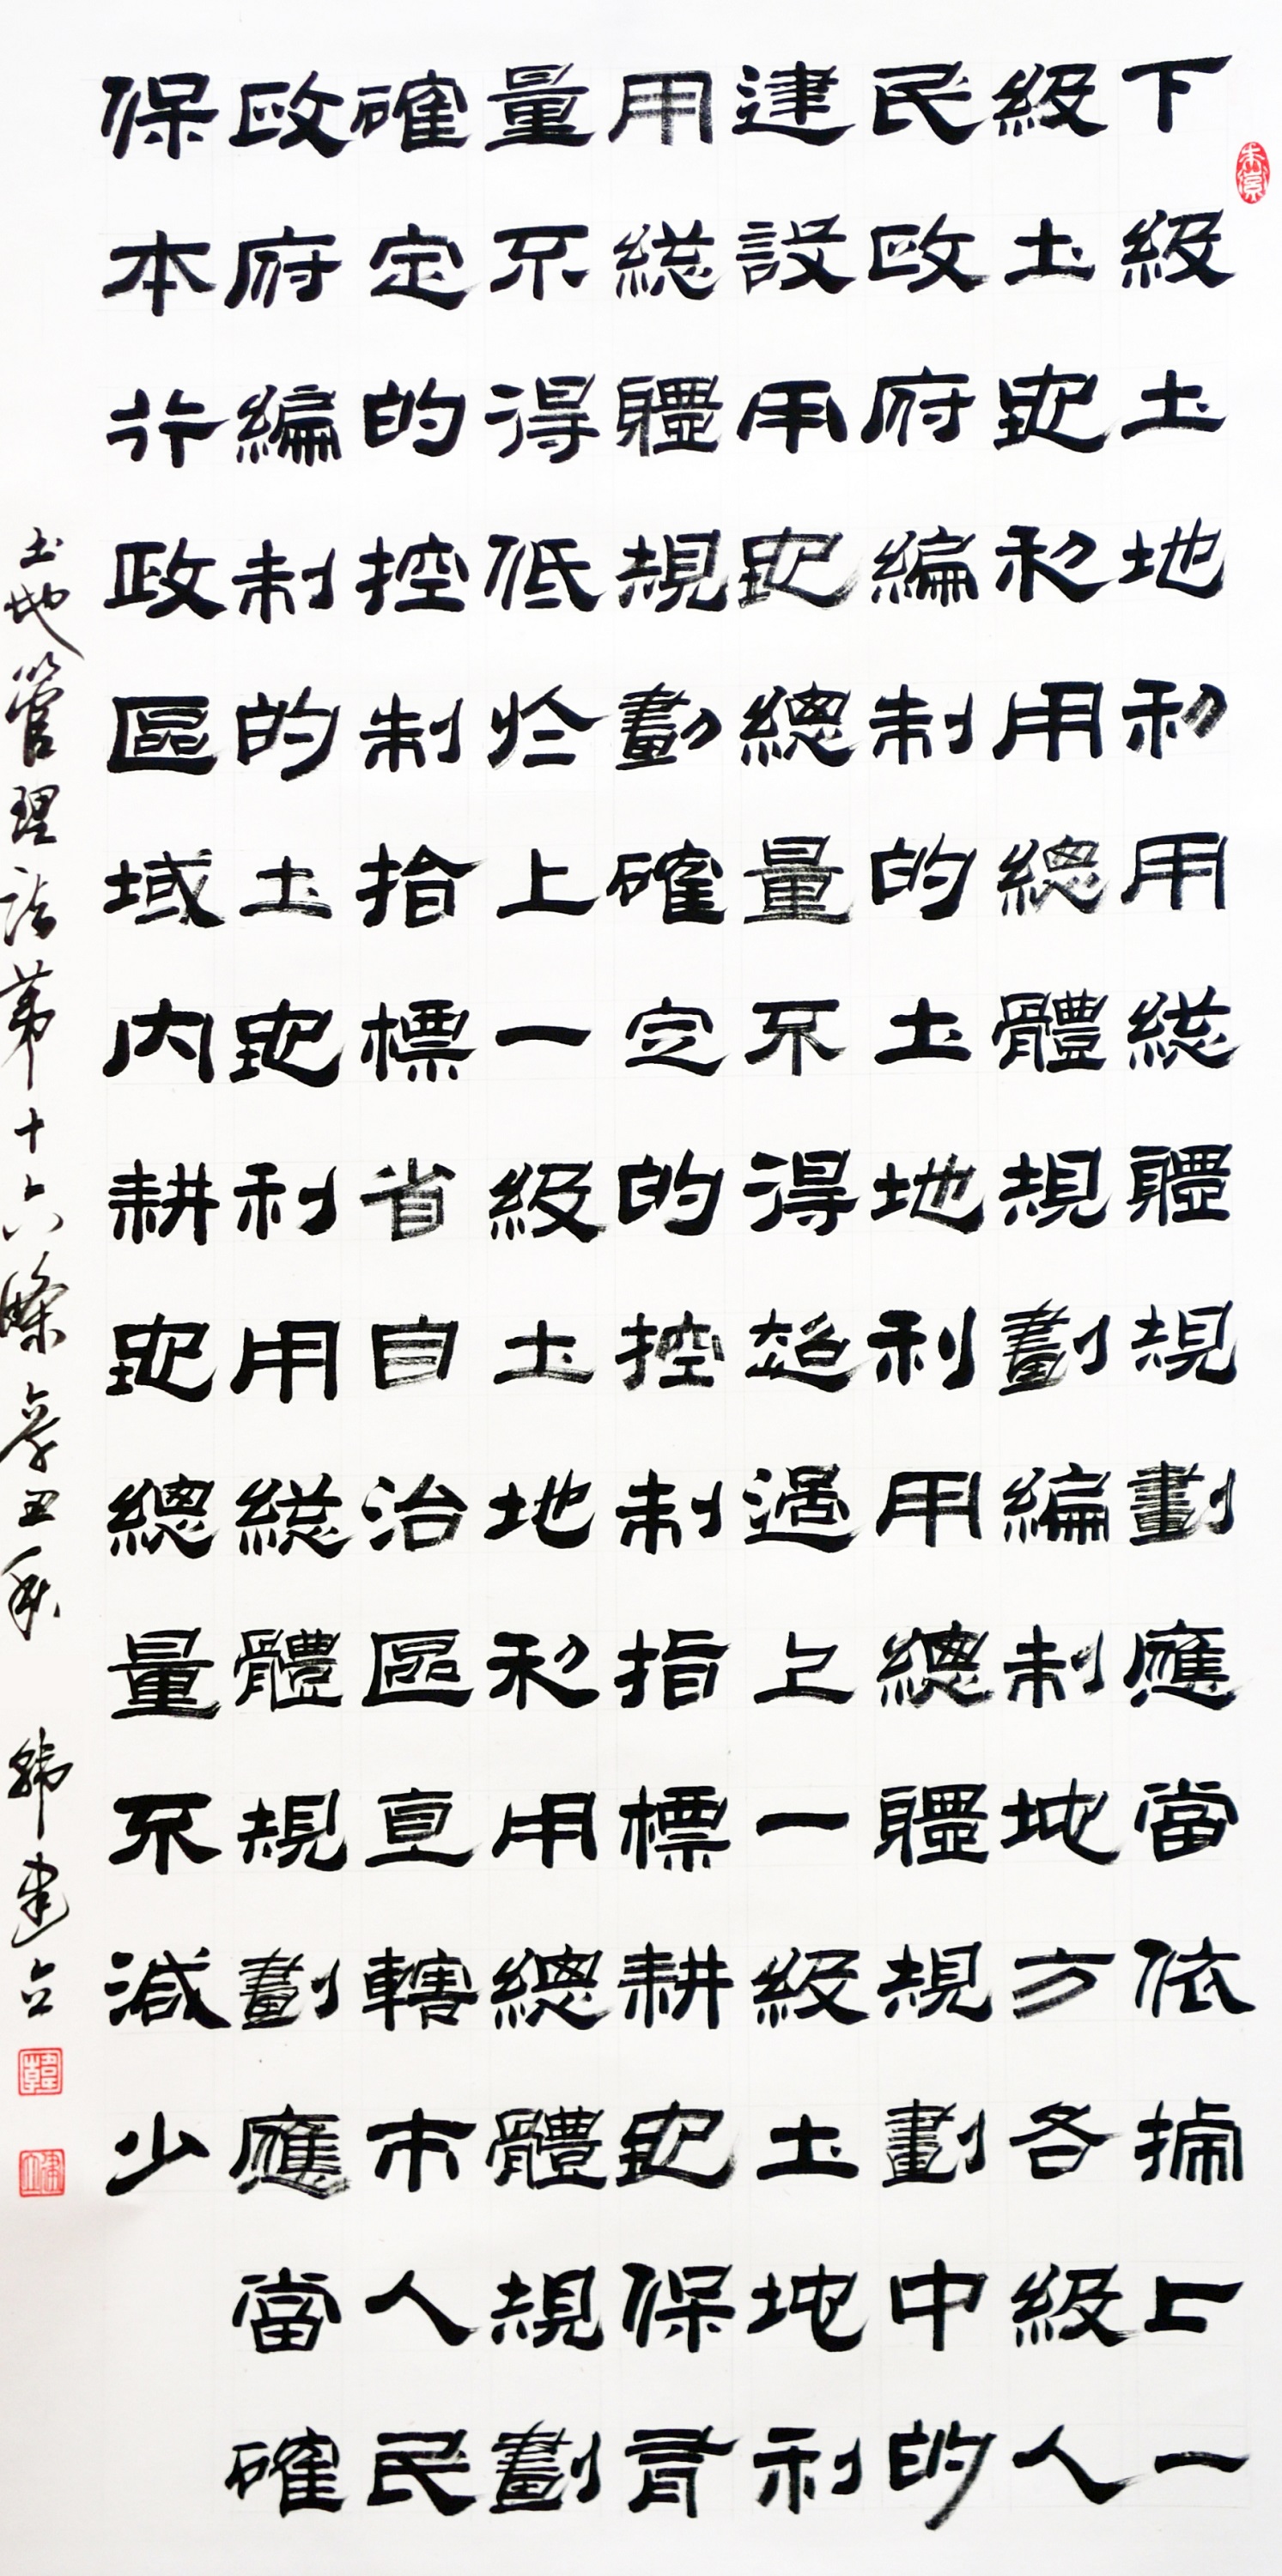 下級土地利用總體規劃應當依據上一
級土地利用總體規劃編制地方各級人
民政府編制的土地利用總體規劃中的
建設用地總量不得超過上一級土地利
用總體規劃確定的控制指標耕地保有
量不得低於上一級土地利用總體規劃
確定的控制指標省自治區直轄市人民
政府編制的土地利用總體規劃應當確
保本行政區域內耕地總量不減少
土地管理法第十六條 辛丑秋 韓建立
韓
建立